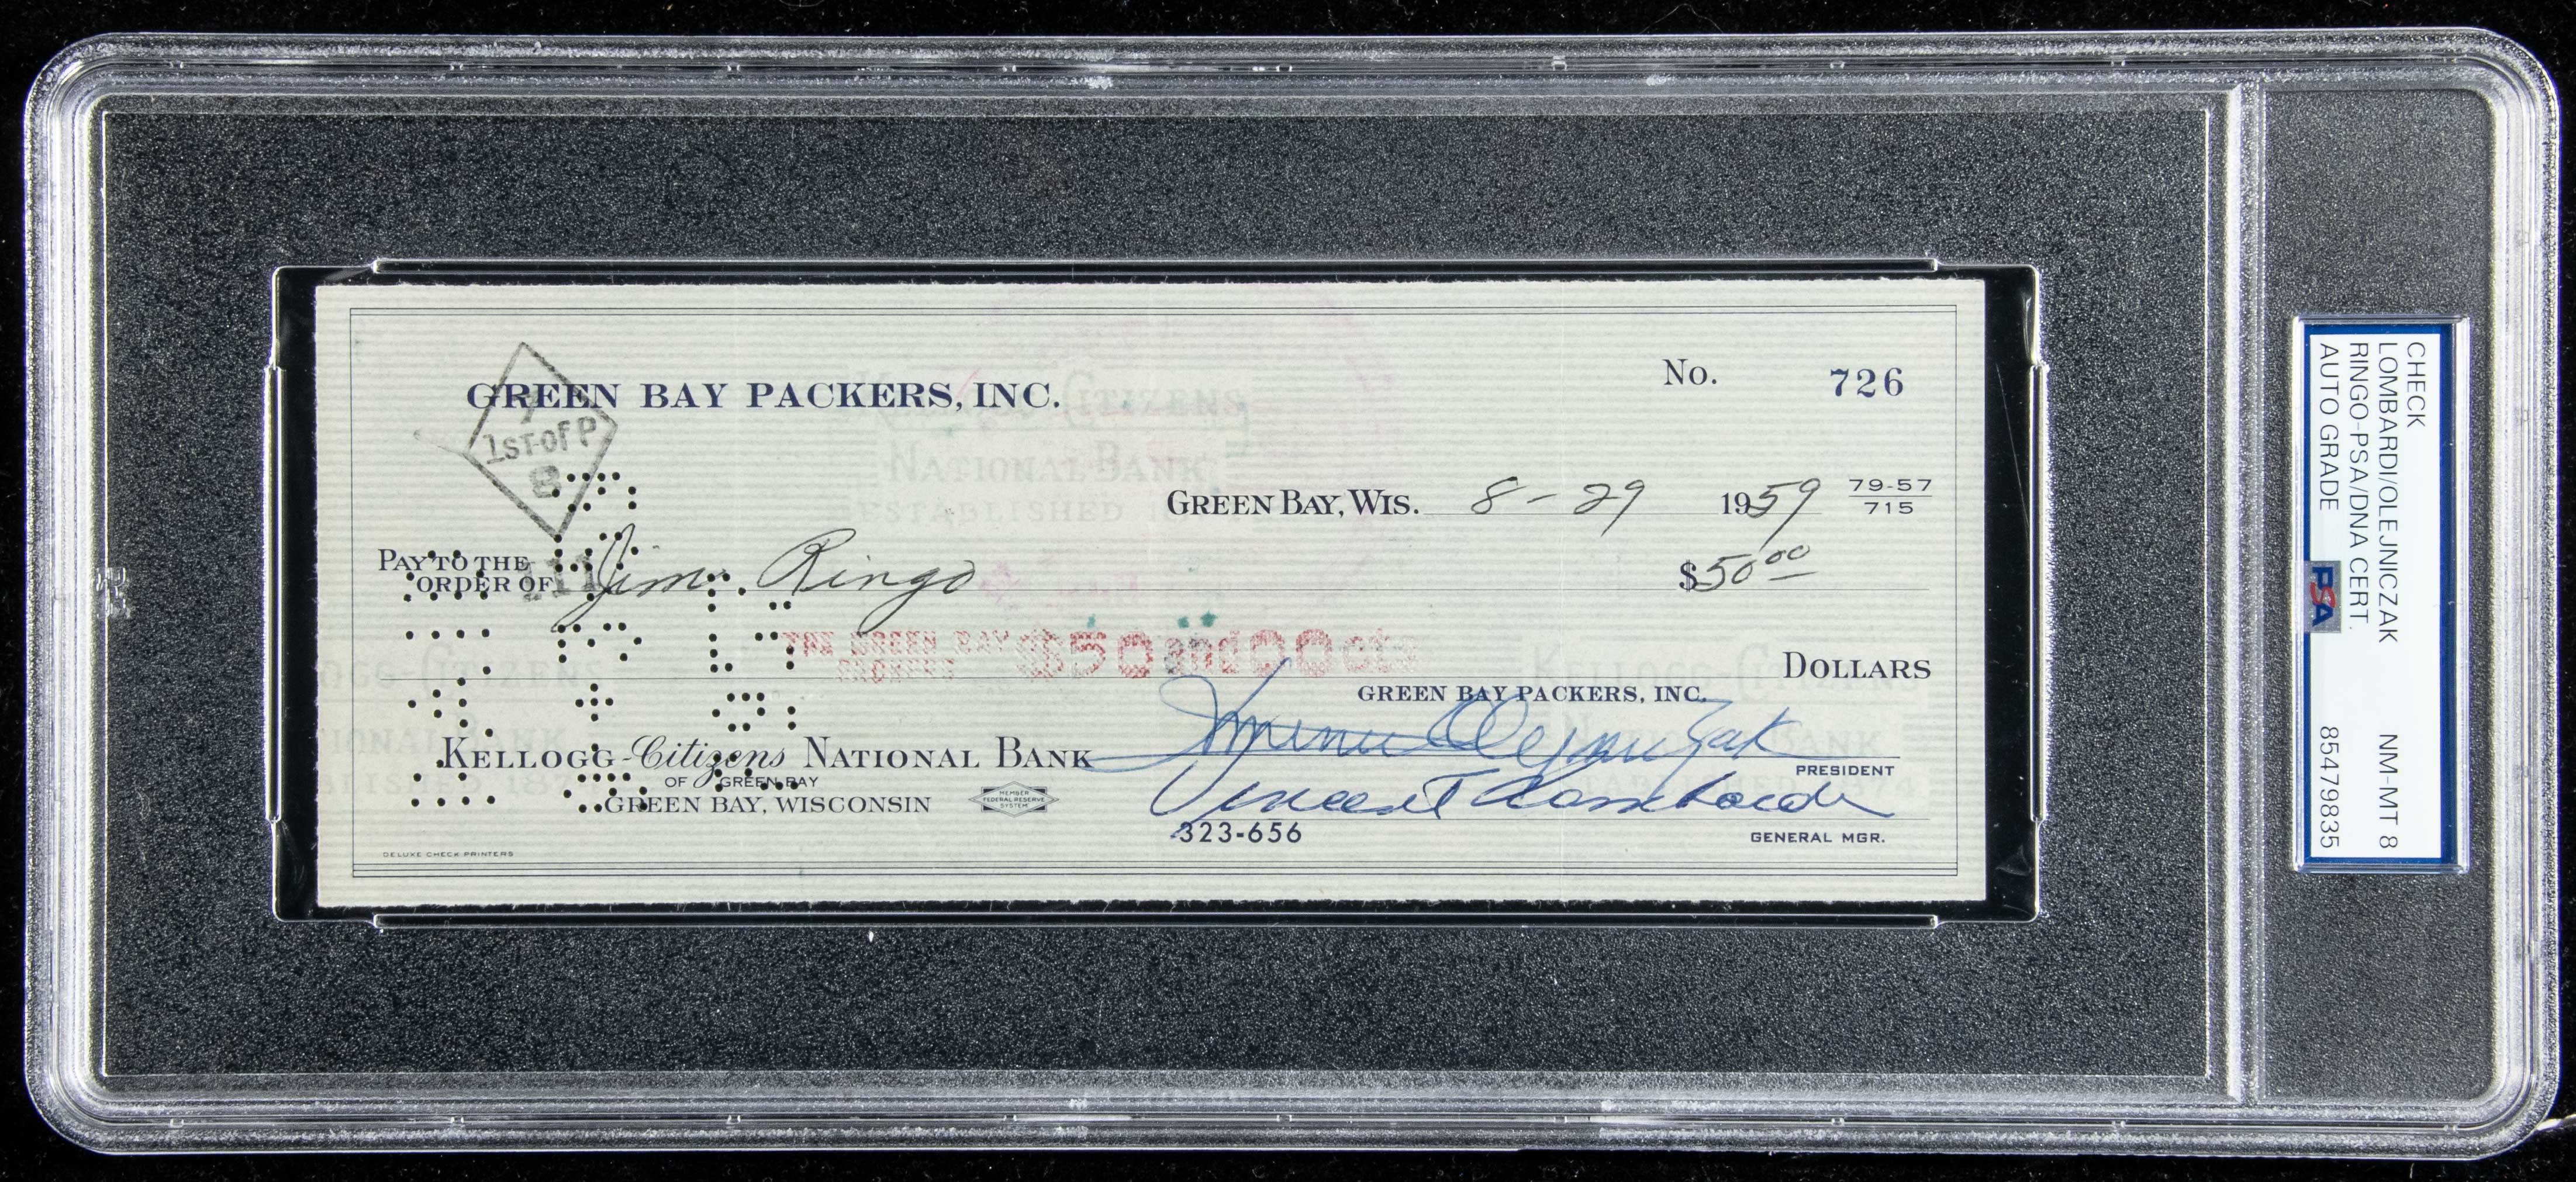 GREEN BAY PACKERS, INC.
No. 726
1ST-OF P
8
GREEN BAY, WIS. 8-29 1959 79-57
715
PAY TO THE
ORDER OF Jim Ringo $50 00
111
THE GREEN BAY
PACKERS
$50 and 00 cts
DOLLARS
GREEN BAY PACKERS, INC.
Dominic Olejniczak
PRESIDENT
KELLOGG-Citizens NATIONAL BANK
OF GREEN BAY
GREEN BAY, WISCONSIN
MEMBER
FEDERAL RESERVE
SYSTEM
Vincent Lombardi
323-656
GENERAL MGR.
DELUXE CHECK PRINTERS
KELLOGG-CITIZENS
NATIONAL BANK
ESTABLISHED 1874
CHECK
LOMBARDI/OLEJNICZAK NM-MT 8
RINGO-PSA/DNA CERT.
AUTO GRADE PSA 85479835